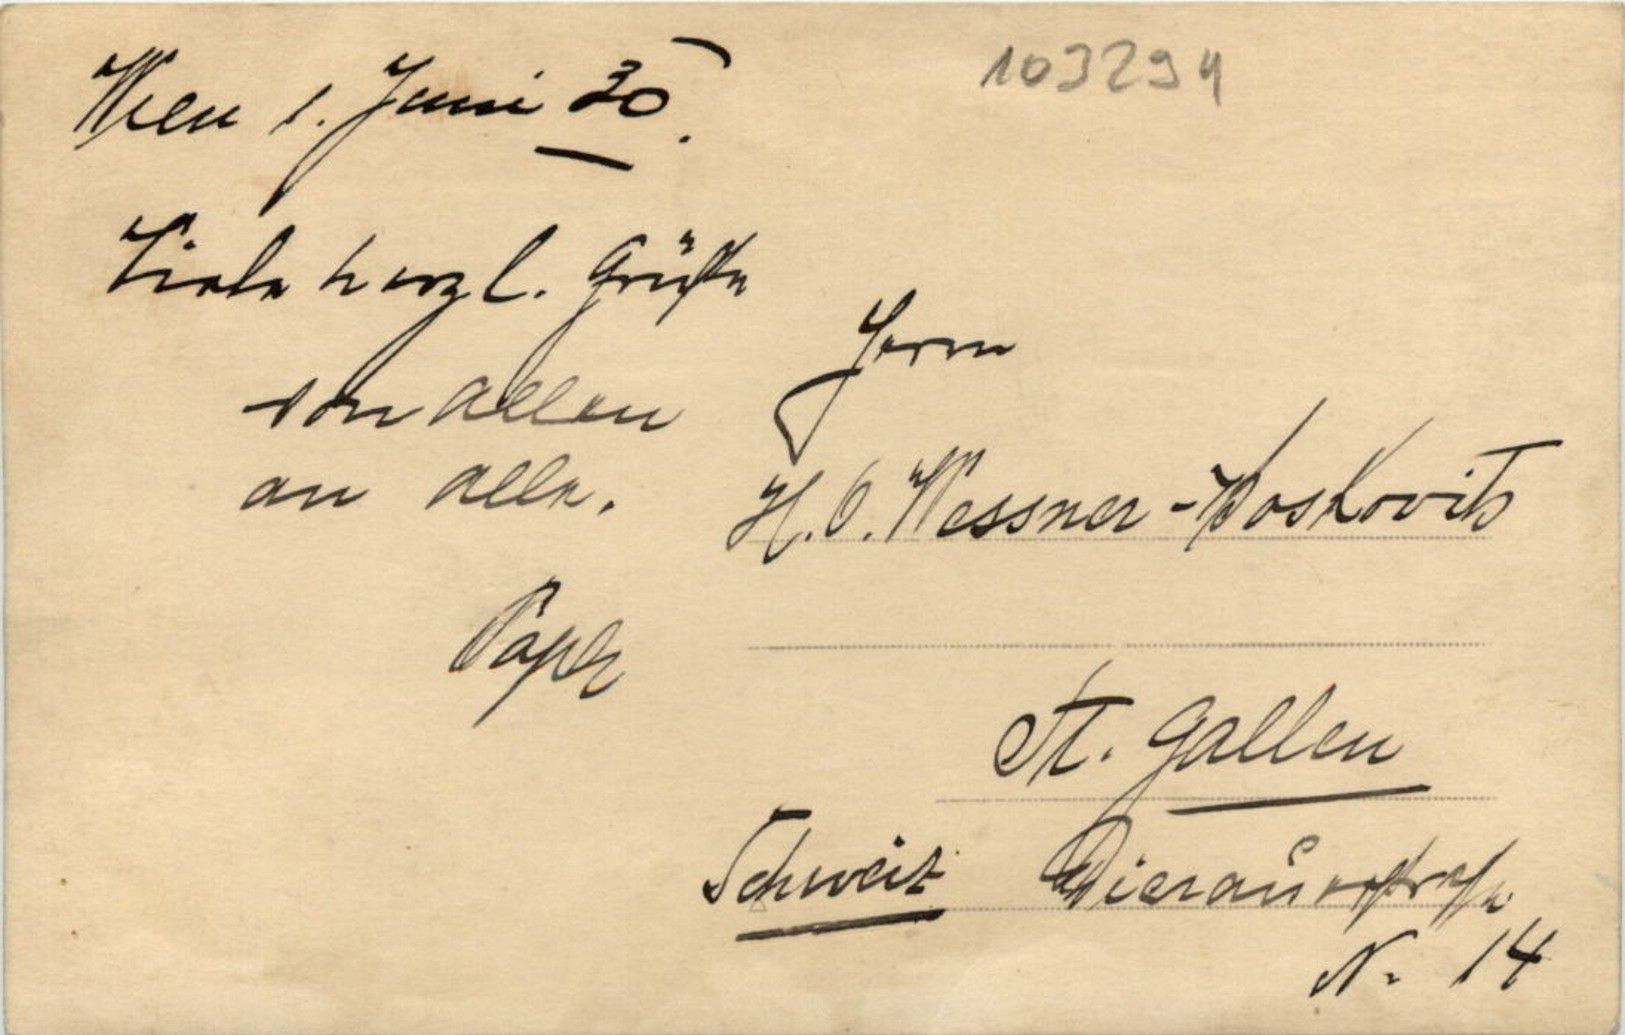 103294
Wien 1. Juni 30.
Viele herzl. Grüße
von allen
an alle.
Herrn
H. O. Wessner-Boskovits
St. Gallen
Schweiz Dierauerstraße
N. 14